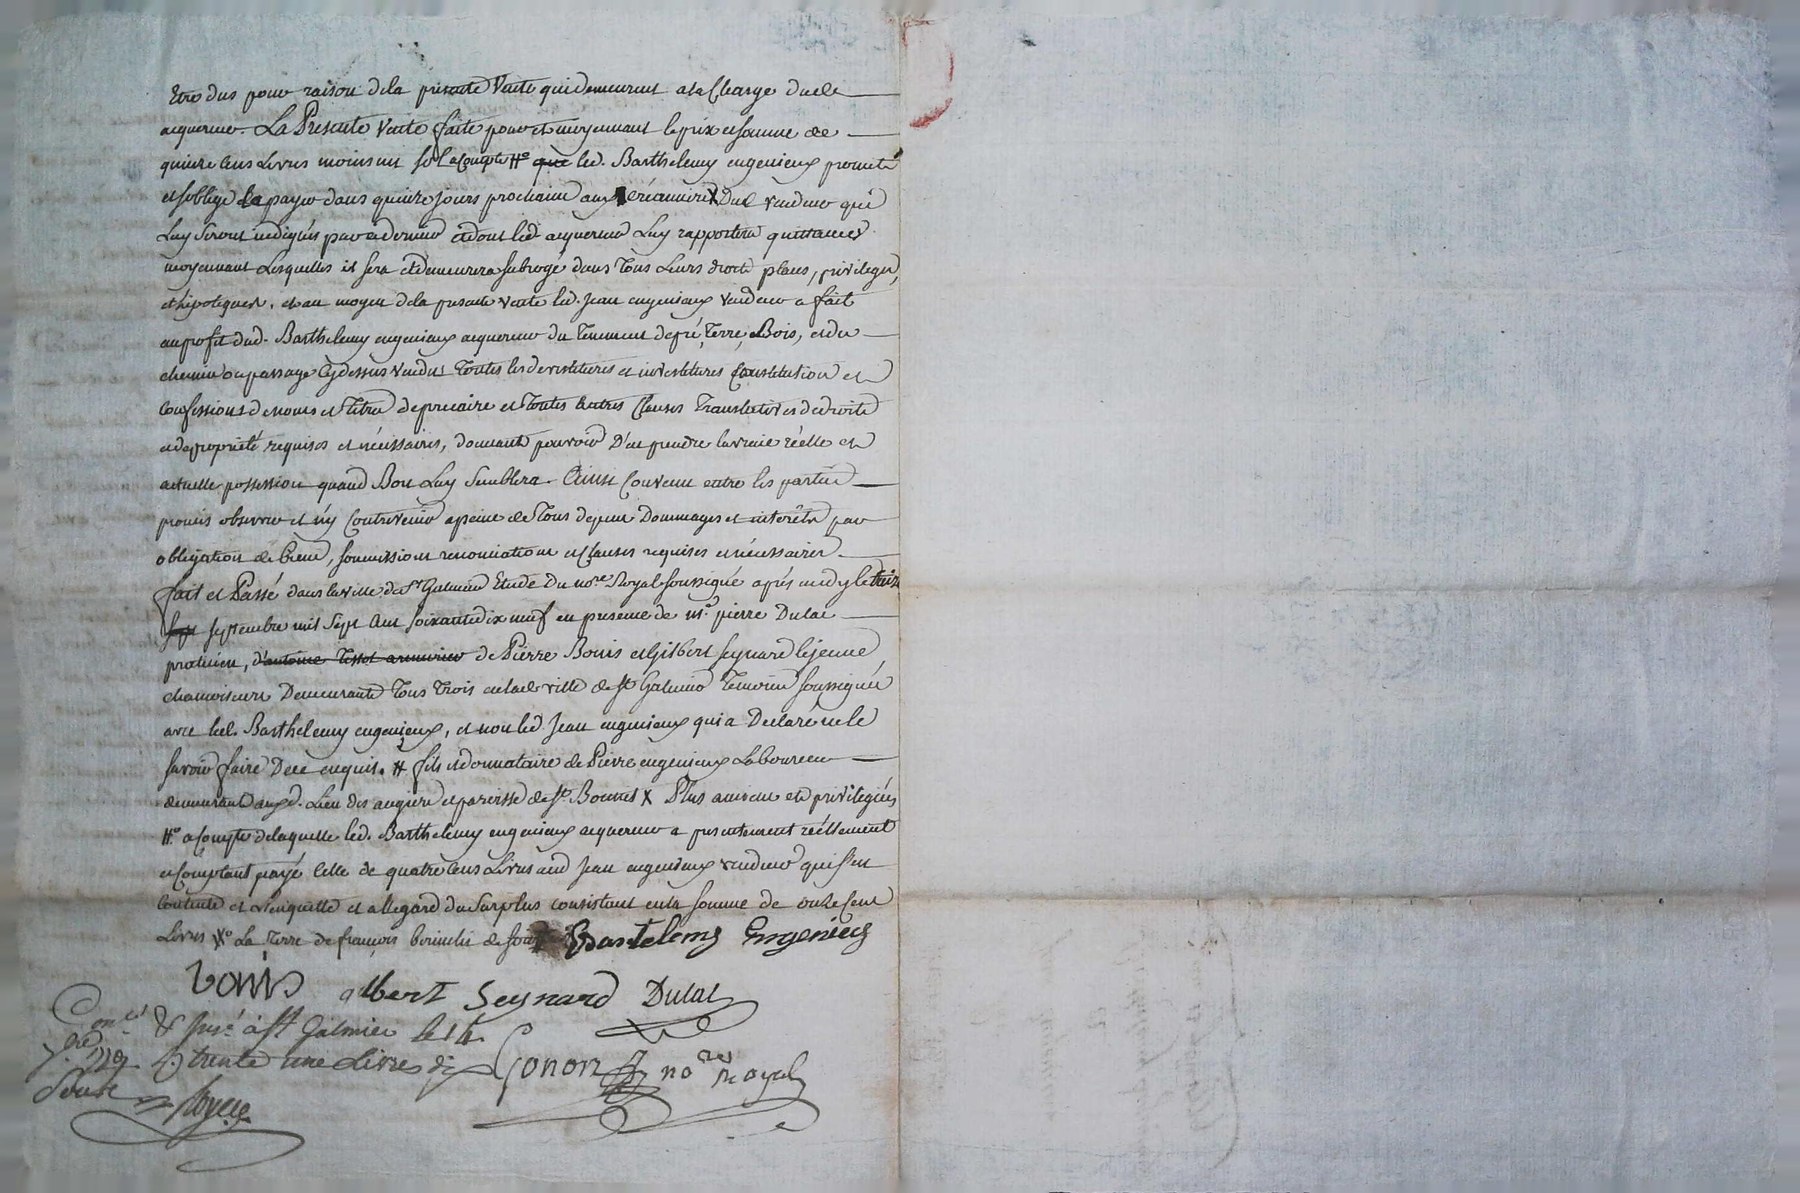 Etre dus pour raison dela presente Vente qui demeurent a la Charge dud.
acquereur. La Presente Vente faite pour et moyennant le prix et somme de
quinze Cens Livres moins un sol acompte #o que led. Barthelemy engenieux promet
et soblige de payer dans quinze jours prochain aux creanciers X Dud. vendeur qui
Luy seront indiqués par ce dernier et dont led. acquereur Luy rapportera quittances
moyennant Lesquelles il sera et demeurera subrogé dans Tous Leurs droits places, privileges,
et hipoteques. et au moyen dela presente vente led. Jean engenieux vendeur a fait
au profit dud. Barthelemy engenieux acquereur du Tenement de pré, Terre, Bois, et du
chemin ou passage Cy dessus vendus Toutes les devestitures et investitures Constitution et
Confessions de noms et Titre de precaire et Toutes autres Clauses Translatives de droits
et de proprieté requises et nécessaires, donnant pouvoir D'en prendre la vraie réelle et
actuelle possession quand Bon Luy Semblera. Ainsi Convenu entre les parties
promis observer et n'y Contrevenir a peine de Tous depens Dommages et interêts par
obligation de biens, soumissions renonciations et Clauses requises et nécessaires.
fait et Passé dans la ville de St Galmier Etude Du nore Royal soussigné après midy le treize
sept septembre mil Sept Cent soixante dix neuf en presence de me pierre Dulac
praticien, d'antoine Tissot armurier de Pierre Bouis et Gilbert Seynard le jeune
chamoiseurs Demeurants Tous Trois en lad. ville de St Galmier Temoins soussignés
avec led. Barthelemy engenieux, et non led. Jean engenieux qui a Declaré ne le
savoir faire De ce enquis. # fils et donnataire de Pierre engenieux Laboureur
demeurant aud. Lieu des angiere et paroisse de St Bonnet X Plus anciens et privilegiés
#o acompte de laquelle led. Barthelemy engenieux acquereur a presentement réellement
et Comptant payé Celle de quatre Cens Livres aud. Jean engenieux vendeur qui s'en
Contente et L'en quitte et a l'egard du Surplus consistant en la somme de onze Cent
Livres Xo La Terre de françois
Bartelemy Engenieux
Bouis gilbert Seynard Dulac
Conlé & Inse à St Galmier le 14
7bre 1779 R. trente une Livre dix
Sous
Royer
Conon nore Royal